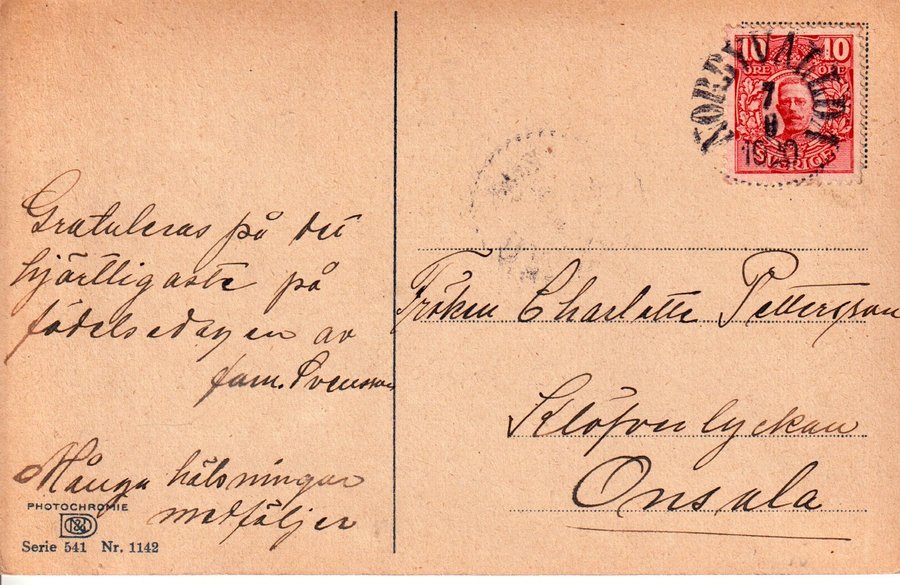 Gratuleras på det
hjärtligaste på
födelsedagen av
fam. Svensson
Många hälsningar
medföljer
PHOTOCHROMIE
Serie 541 Nr. 1142
10 10
ÖRE ÖRE
SVERIGE
7
Fröken Charlotte Pettersson
Klöfverlyckan
Onsala